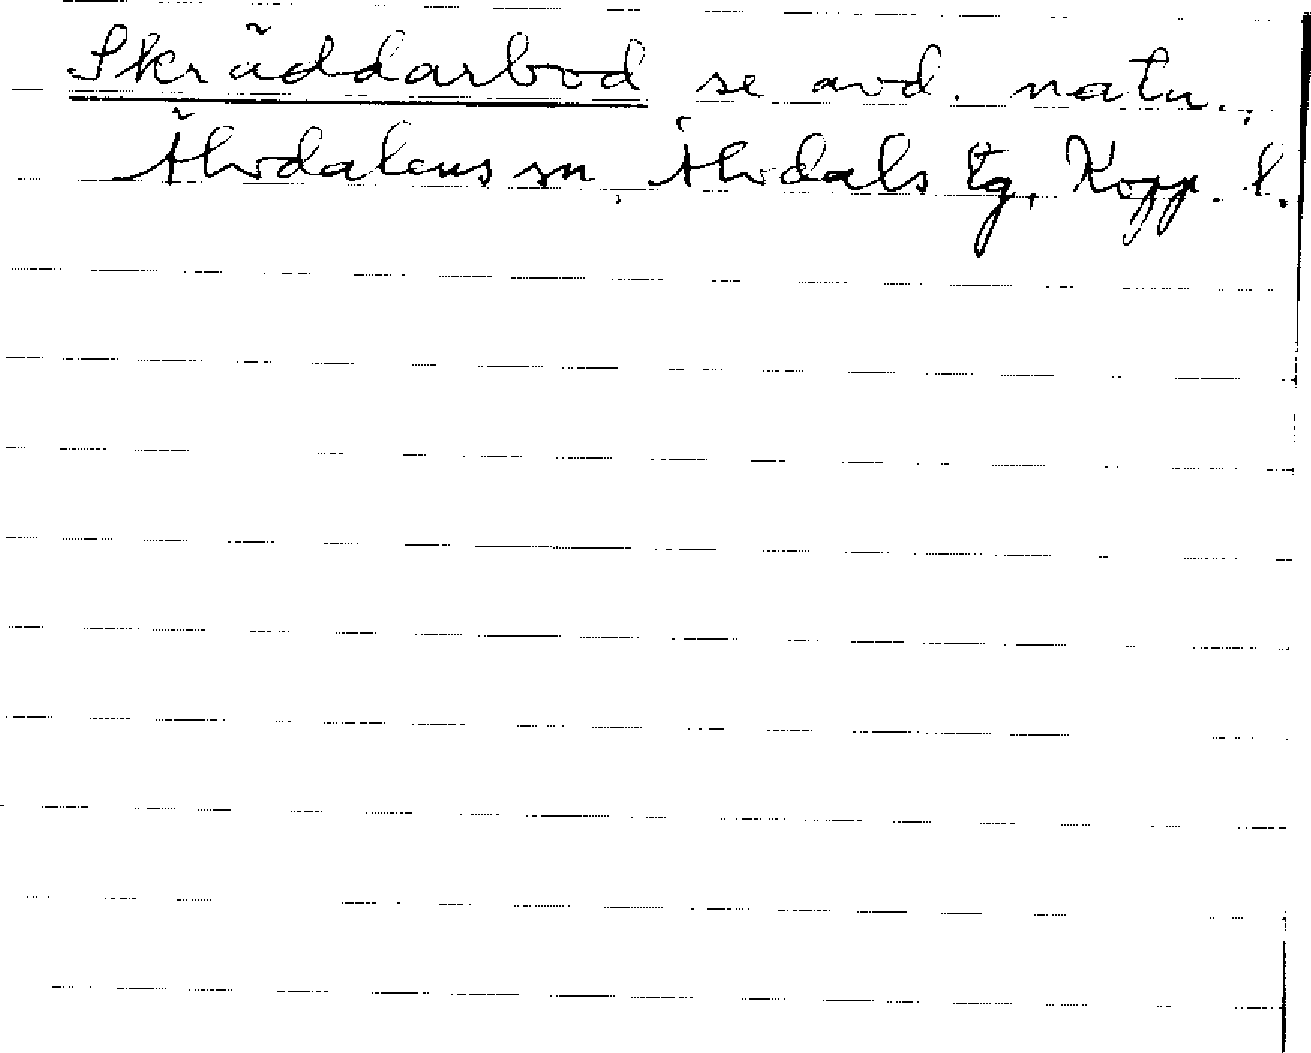 Skräddarbod se avd. natn.,
Älvdalens sn, Älvdals tg, Kopp. l.